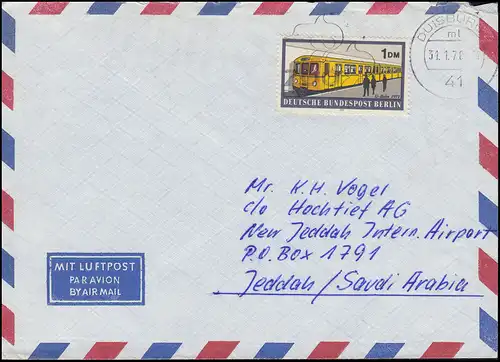 DUISBURG
mt
31.1.7
41
1DM
DEUTSCHE BUNDESPOST BERLIN
Mr. K.H. Vogel
c/o Hochtief AG
New Jeddah Intern. Airport
P.O. Box 1791
Jeddah/Saudi Arabia
MIT LUFTPOST
PAR AVION
BY AIR MAIL